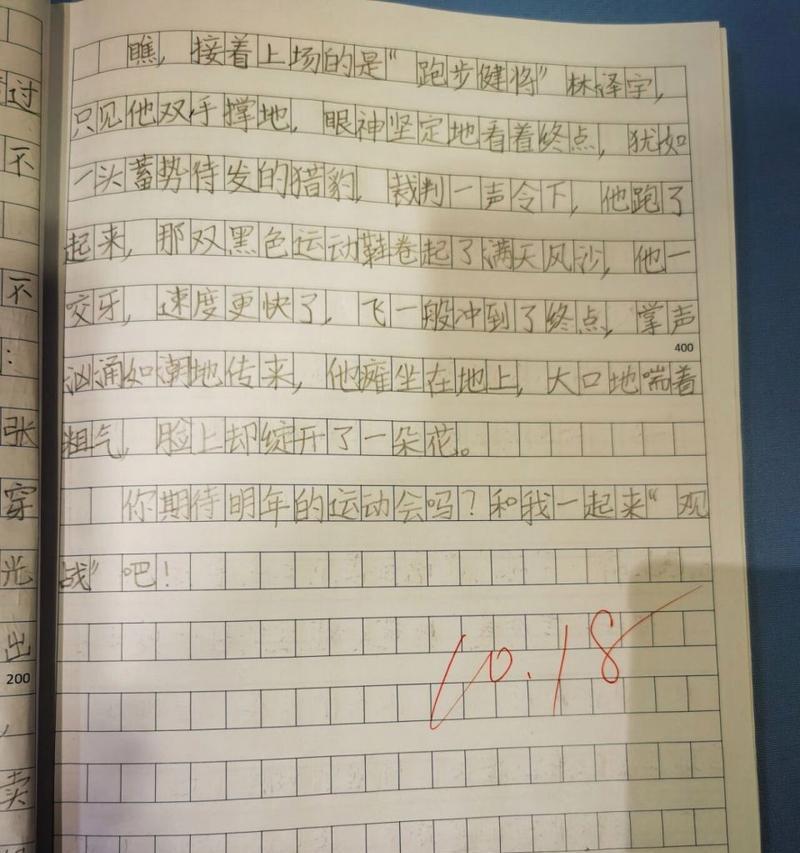 瞧，接着上场的是“跑步健将”林泽宇，
只见他双手撑地，眼神坚定地看着终点，犹如
一头蓄势待发的猎豹，裁判一声令下，他跑了
起来，那双黑色运动鞋卷起了满天风沙，他一
咬牙，速度更快了，飞一般冲到了终点，掌声
400
汹涌如潮地传来，他瘫坐在地上，大口地喘着
粗气，脸上却绽开了一朵花。
你期待明年的运动会吗？和我一起来“观
战”吧！
10.18
过
不
不
：
张
穿
光
出
200
，
卖